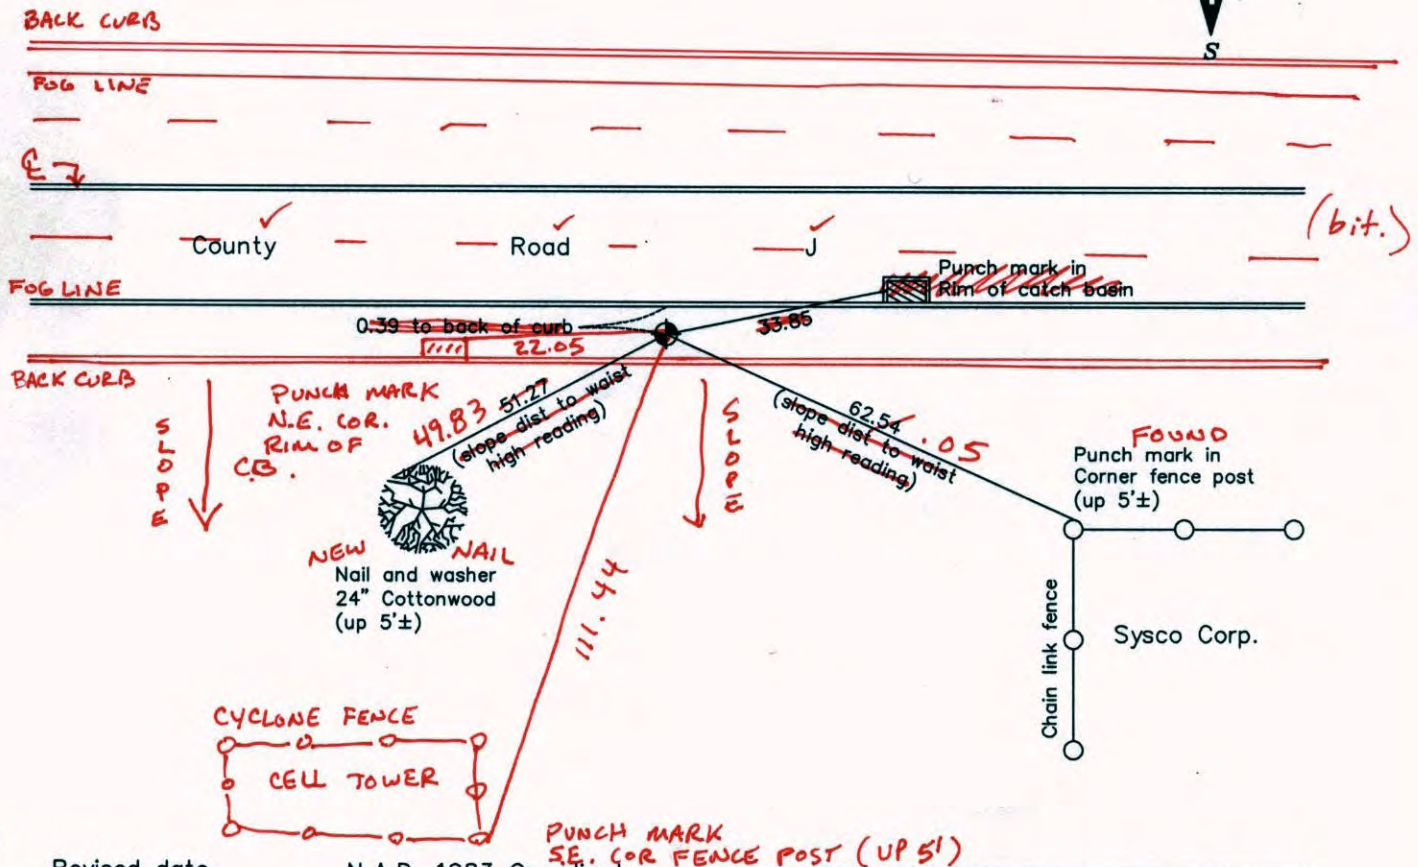 BACK CURB
S
FOG LINE
℄
County Road J
(bit.)
Punch mark in
Rim of catch basin
FOG LINE
0.39 to back of curb
33.85
22.05
BACK CURB
SLOPE
PUNCH MARK
N.E. COR.
RIM OF
C.B.
49.83 51.27
(slope dist to waist
high reading)
SLOPE
62.54 .05
(slope dist to waist
high reading)
FOUND
Punch mark in
Corner fence post
(up 5'±)
NEW NAIL
Nail and washer
24" Cottonwood
(up 5'±)
111.44
Chain link fence
Sysco Corp.
CYCLONE FENCE
CELL TOWER
PUNCH MARK
S.E. COR FENCE POST (UP 5')
Revised date
N.A.D. 1983